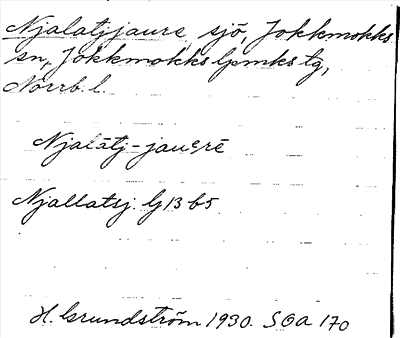 Njalatjjaure, sjö, Jokkmokks
sn, Jokkmokks lpmks tg,
Norrb. l.
Njalātj-jauᵉrē
Njallatsj. lj 13 b5
H. Grundström 1930. SOA 170